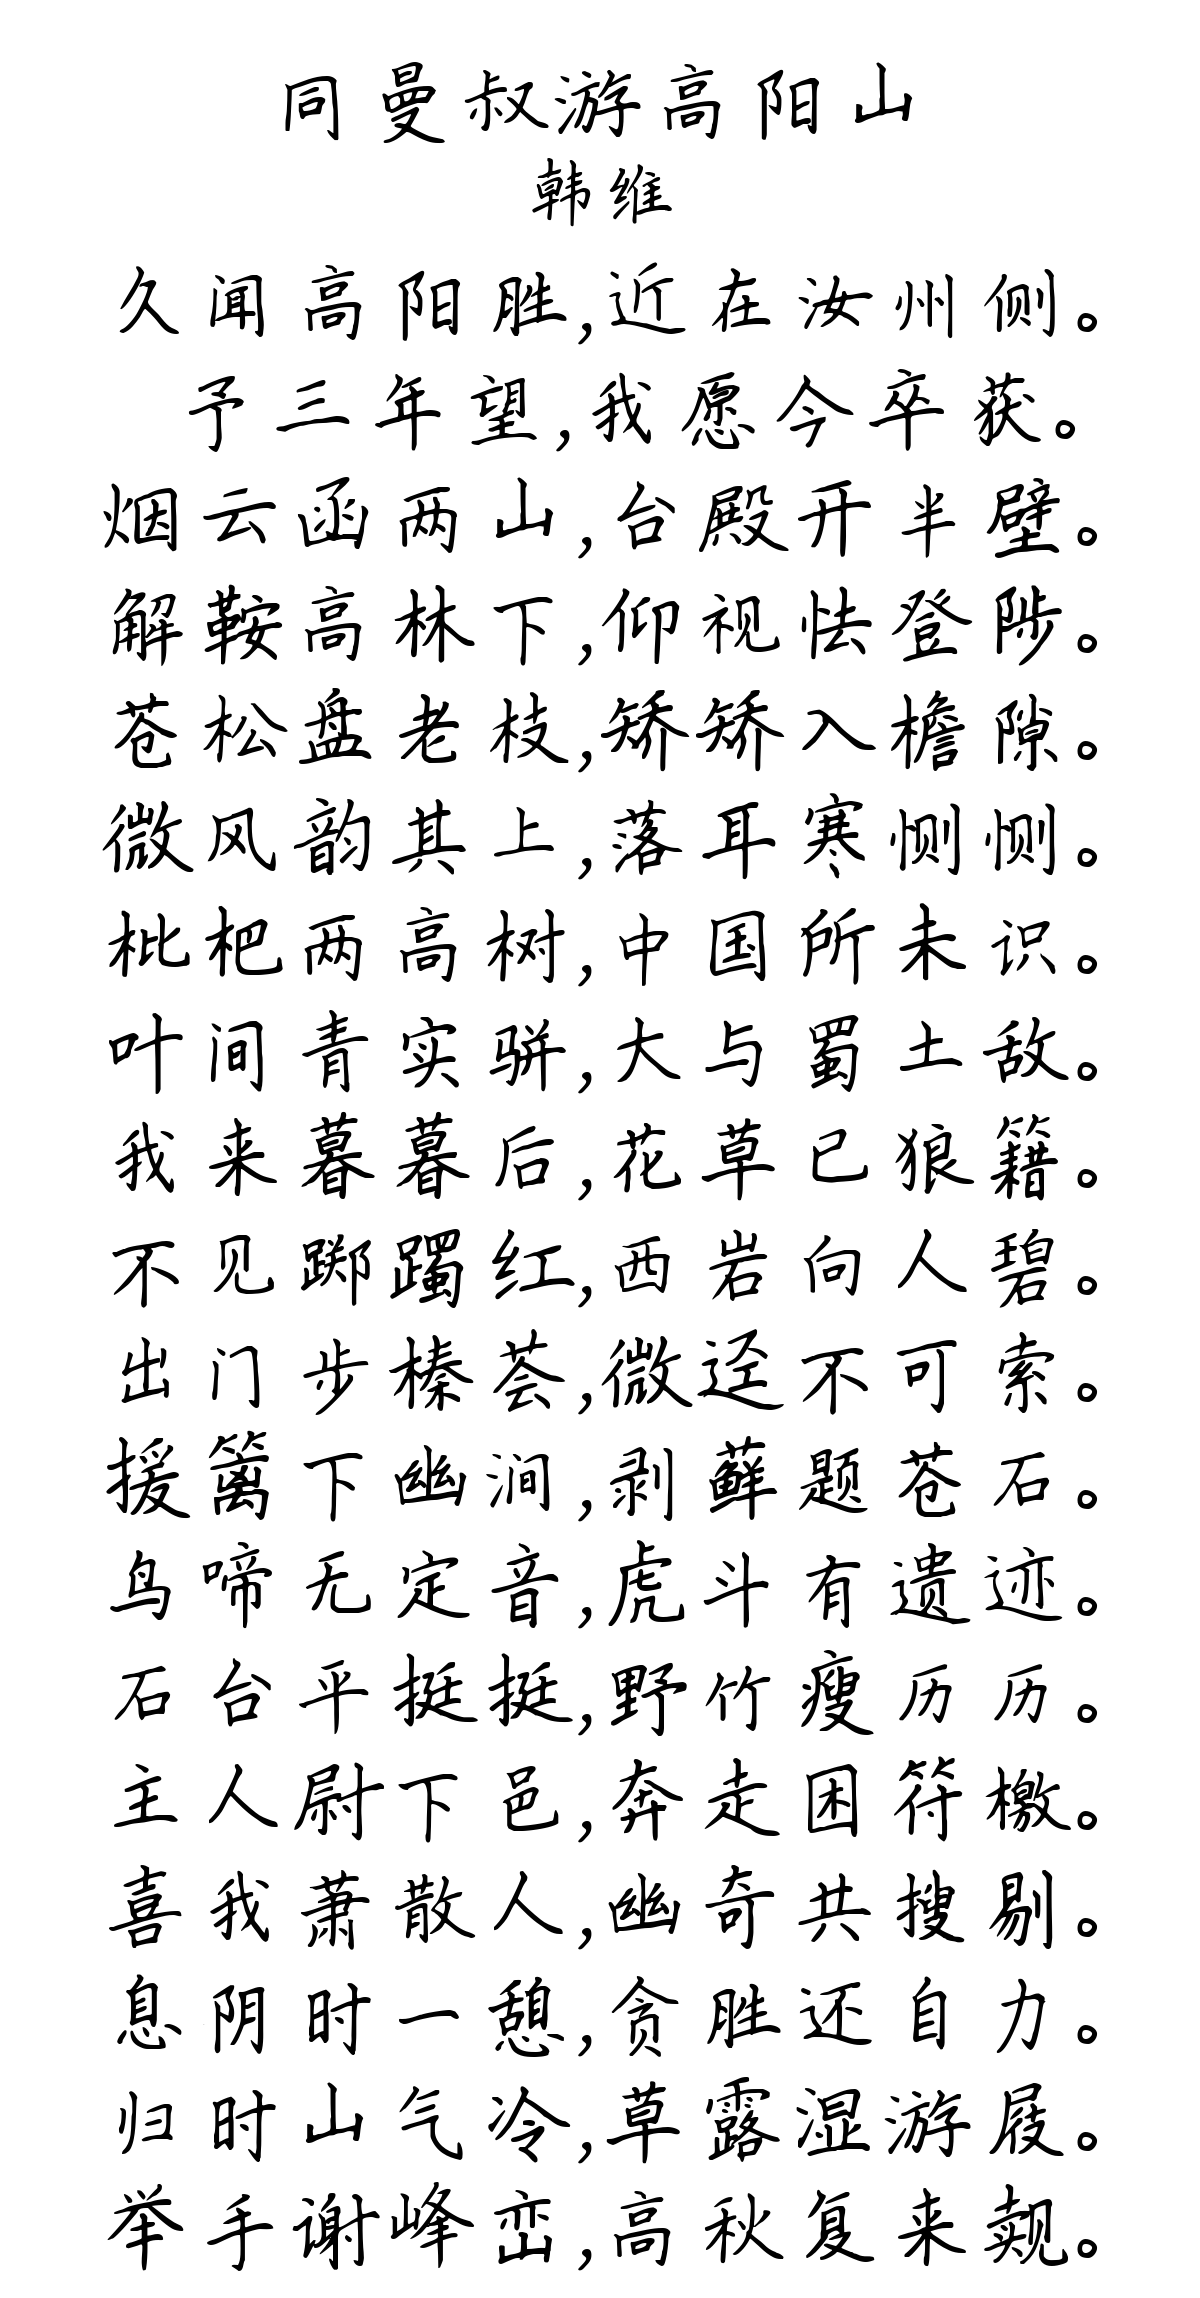 同曼叔游高阳山
韩维
久闻高阳胜,近在汝州侧。
予三年望,我愿今卒获。
烟云函两山,台殿开半壁。
解鞍高林下,仰视怯登陟。
苍松盘老枝,矫矫入檐隙。
微风韵其上,落耳寒恻恻。
枇杷两高树,中国所未识。
叶间青实骈,大与蜀土敌。
我来暮暮后,花草已狼籍。
不见踯躅红,西岩向人碧。
出门步榛荟,微迳不可索。
援篱下幽涧,剥藓题苍石。
鸟啼无定音,虎斗有遗迹。
石台平挺挺,野竹瘦历历。
主人尉下邑,奔走困符檄。
喜我萧散人,幽奇共搜剔。
息阴时一憩,贪胜还自力。
归时山气冷,草露湿游屐。
举手谢峰峦,高秋复来觌。